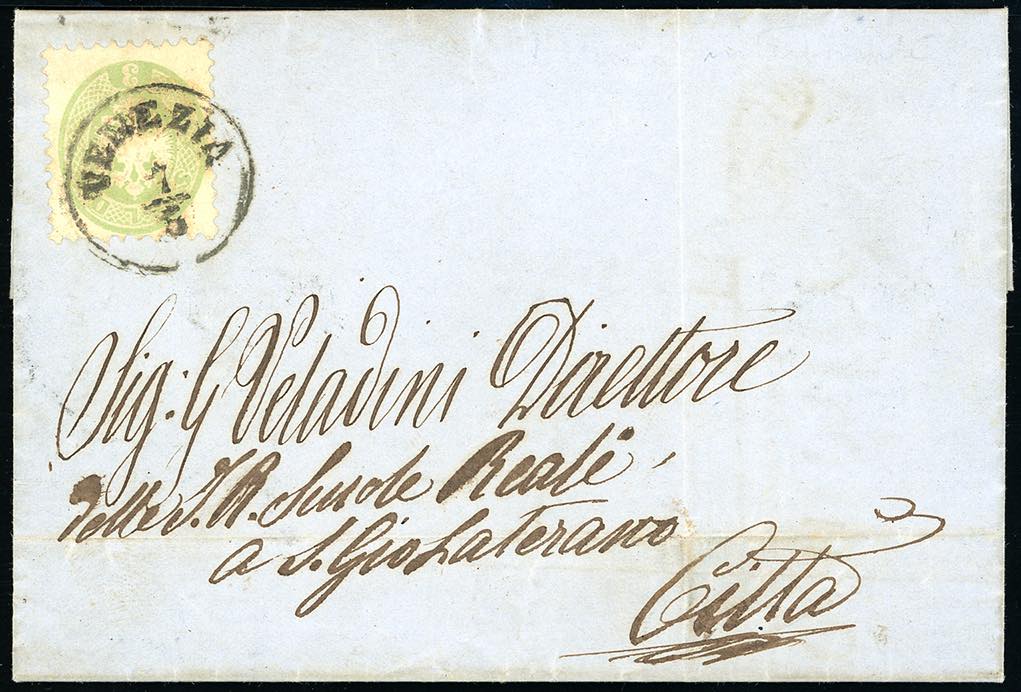 VENEZIA
7
Sig: G Veladini Direttore
delle I. R. Scuole Reali
a S. Gio Laterano
Città